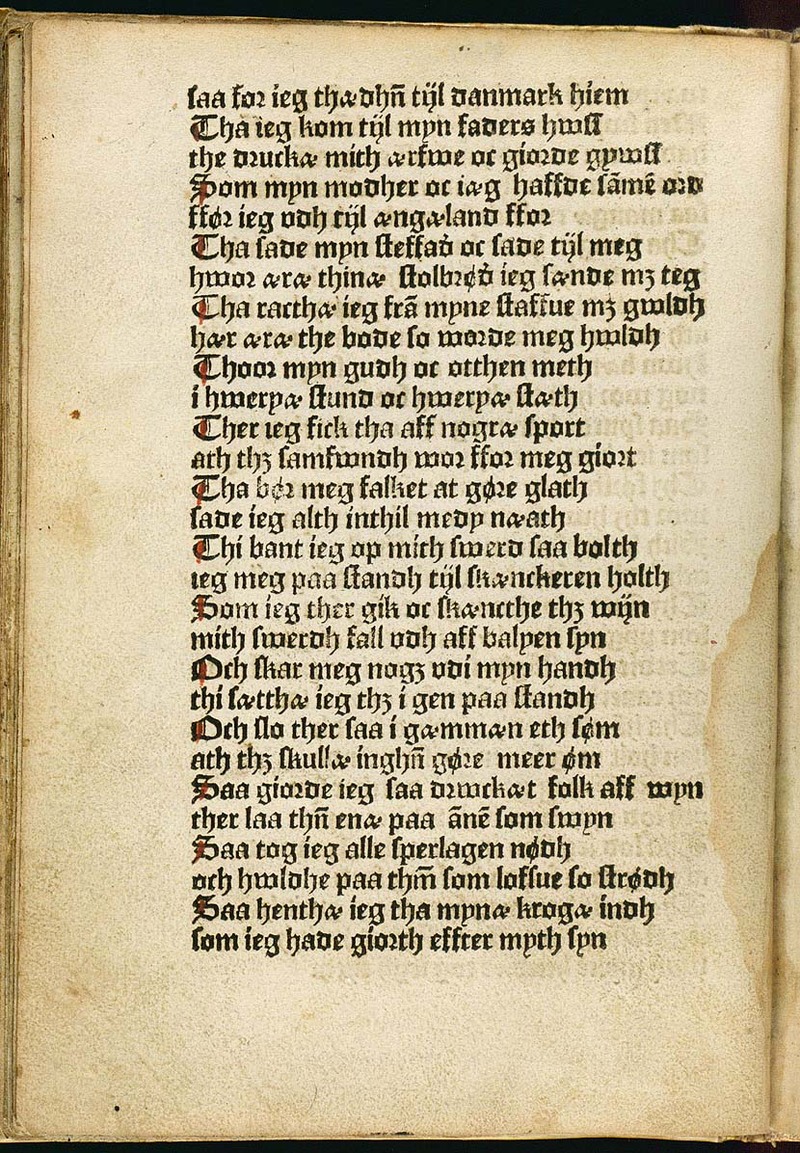 saa for ieg thædhn̄ tijl danmark hiem
Tha ieg kom tijl myn faders hwsß
the druckæ mith ærfwe oc giorde gywsß
Som myn modher oc iæg haffde sāmē ord
ffør ieg vdh tijl ængæland ffor
Tha sade myn steffad̄ oc sade tijl meg
hwor æræ thinæ stolbrød̄ ieg sænde mꝫ teg
Tha racthæ ieg frā myne staffue mꝫ gwldh
hær æræ the bode so worde meg hwldh
Thoor myn gudh oc otthen meth
i hweryæ stund oc hweryæ stæth
Ther ieg fick tha aff nogræ sport
ath thꝫ samfwndh wor ffor meg giort
Tha bør meg falket at gøre glath
sade ieg alth inthil medy næath
Thi bant ieg op mith swerd saa bolth
ieg meg paa standh tijl skænckeren holth
Som ieg ther gik oc skæncthe thꝫ wijn
mith swerdh fall vdh aff balyen syn
Och skar meg nogꝫ vdi myn handh
thi sætthæ ieg thꝫ i gen paa standh
Och slo ther saa i gæmmæn eth søm
ath thꝫ skullæ inghn̄ gøre meer øm
Saa giorde ieg saa drwckæt folk aff wyn
ther laa thn̄ enæ paa ānē som swyn
Saa tog ieg alle sperlagen nødh
och hwldhe paa thm̄ som loffue so strødh
Saa henthæ ieg tha mynæ krogæ indh
som ieg hade giorth effter myth syn